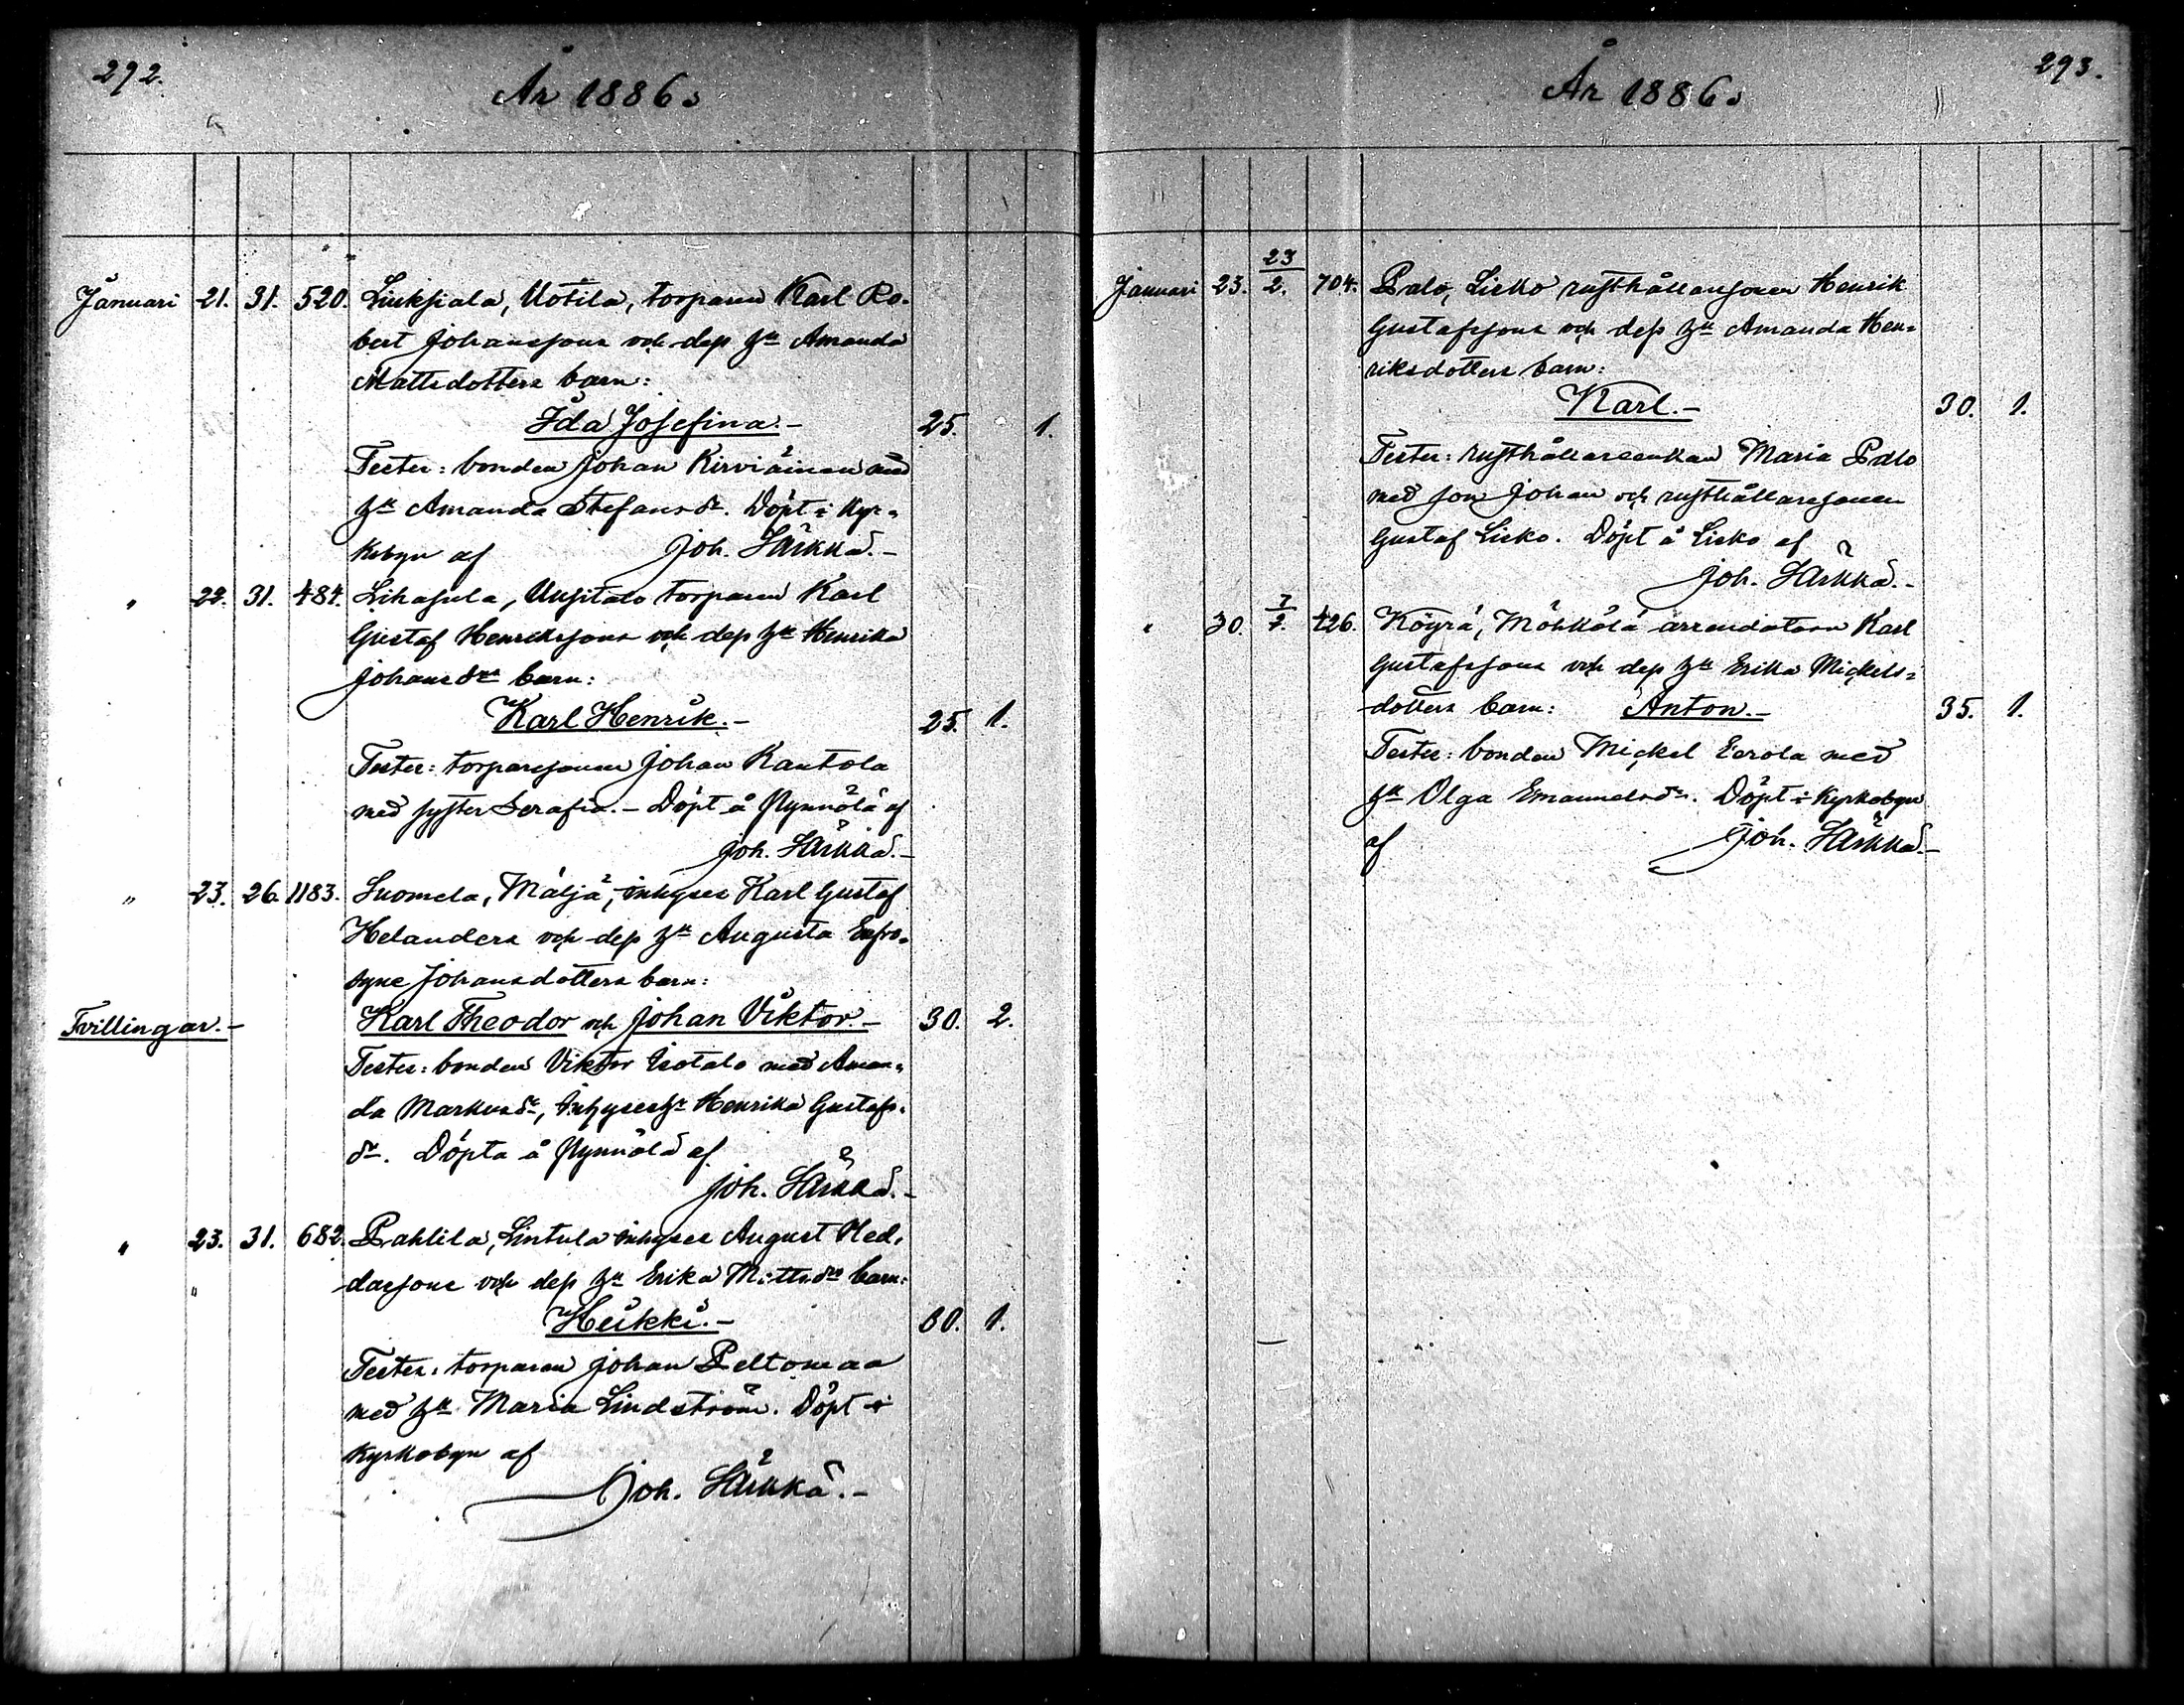 292.
År 1886.
Januari 21. 31. 520. Liuksiala, Uotila, torparen Karl Ro-
bert Johanssons och dess h:u Amanda
Mattsdotters barn:
Ida Josefina.- 25. 1.
Tester: bonden Johan Kirviäinen med
h:u Amanda Stefansdr. Döpt i Kyr-
kobyn af Joh. Särkkä.-
" 22. 31. 484. Lihasula, Uusitalo torparen Karl
Gustaf Henrikssons och dess h:u Henrika
Johansdrs barn:
Karl Henrik.- 25. 1.
Tester: torparesonen Johan Kantola
med syster Serafia.- Döpt å Nynnölä af
Joh. Särkkä.-
" 23. 26. 1183. Suomela, Mäljä, inhyses Karl Gustaf
Helanders och dess h:u Augusta Eufro-
syne Johansdotters barn:
Tvillingar.- Karl Theodor och Johan Viktor.- 30. 2.
Tester: bonden Viktor Isotalo med Aman-
da Markusdr, inhysesh:u Henrika Gustafs-
dr. Döpta å Nynnölä af
Joh. Särkkä.-
" 23. 31. 682. Pahlila, Lintula inhyses August Hed-
dassons och dess h:u Erika Mattsdrs barn:
" Heikki.- 30. 1.
Tester: torparen Johan Peltomaa
med h:u Maria Lindström. Döpt i
Kyrkobyn af
Joh. Särkkä.-
293.
År 1886.
Januari 23. 23/2. 704. Palo, Lieko rusthållaresonen Henrik
Gustafssons och dess h:u Amanda Hen-
riksdotters barn:
Karl.- 30. 1.
Tester: rusthållareenkan Maria Palo
med son Johan och rusthållaresonen
Gustaf Lieko. Döpt å Lieko af
Joh. Särkkä.-
" 30. 7/2. 426. Köyrä, Möhkölä arrendatorn Karl
Gustafssons och dess h:u Erika Mickels-
dotters barn: Anton.- 35. 1.
Tester: bonden Mickel Eerola med
h:u Olga Emanuelsdr. Döpt i Kyrkobyn
af Joh. Särkkä.-